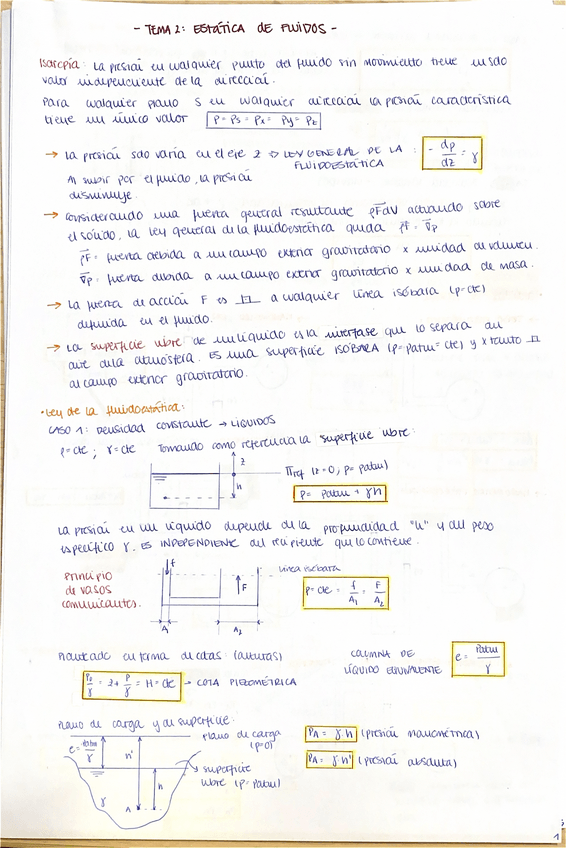 - TEMA 2: ESTÁTICA DE FLUIDOS -
Isotropía: La presión en cualquier punto del fluido sin movimiento tiene un solo
valor independiente de la dirección.
Para cualquier plano S en cualquier dirección la presión característica
tiene un único valor P = Ps = Px = Py = Pz
→ La presión solo varía en el eje z ⇨ LEY GENERAL DE LA FLUIDOESTÁTICA : - dp/dz = γ
Al subir por el fluido, la presión
disminuye.
→ Considerando una fuerza general resultante ρF dV actuando sobre
el sólido, la ley general de la fluidoestática queda ρF = ∇p
ρF = fuerza debida a un campo exterior gravitatorio x unidad de volumen.
∇p = fuerza debida a un campo exterior gravitatorio x unidad de masa.
→ La fuerza de acción F es ⊥ a cualquier línea isóbara (p=cte)
definida en el fluido.
→ La superficie libre de un líquido es la interfase que lo separa del
aire de la atmósfera. ES una superficie ISÓBARA (P=Patm=cte) y x tanto ⊥
al campo exterior gravitatorio.
· Ley de la fluidoestática:
CASO 1: Densidad constante → LÍQUIDOS
ρ=cte ; γ=cte Tomando como referencia la superficie libre:
z
h
πref (z=0, P=Patm)
P = Patm + γh
La presión en un líquido depende de la profundidad "h" y del peso
específico γ. ES INDEPENDIENTE del recipiente que lo contiene.
Principio
de vasos
comunicantes.
f
F
A1
A2
línea isóbara
P = cte = f/A1 = F/A2
Planteado en forma de cotas (alturas)
P0/γ = z + P/γ = H = cte → COTA PIEZOMÉTRICA
COLUMNA DE
LÍQUIDO EQUIVALENTE
e = Patm/γ
Plano de carga y de superficie.
e = Patm/γ
h'
h
γ
A
plano de carga
(p=0)
superficie
libre (p=Patm)
PA = γ·h (presión manométrica)
PA = γ·h' (presión absoluta)
1